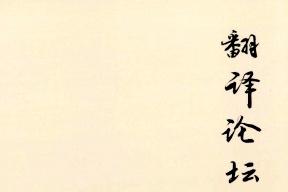 翻译论坛